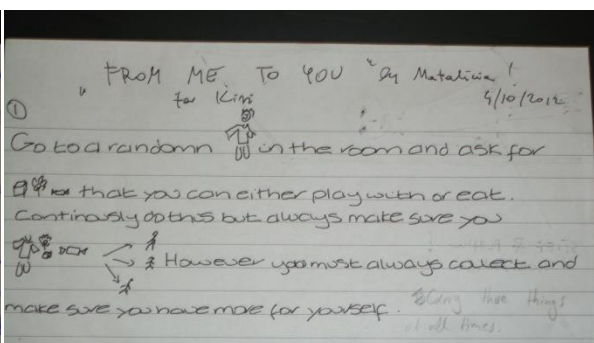 "FROM ME TO YOU" by Matalicia!
for Kiri
4/10/2012
①
Go to a randomn in the room and ask for
that you can either play with or eat.
Continously do this but always make sure you
However you must always collect and
make sure you have more for yourself.
things
at all times.